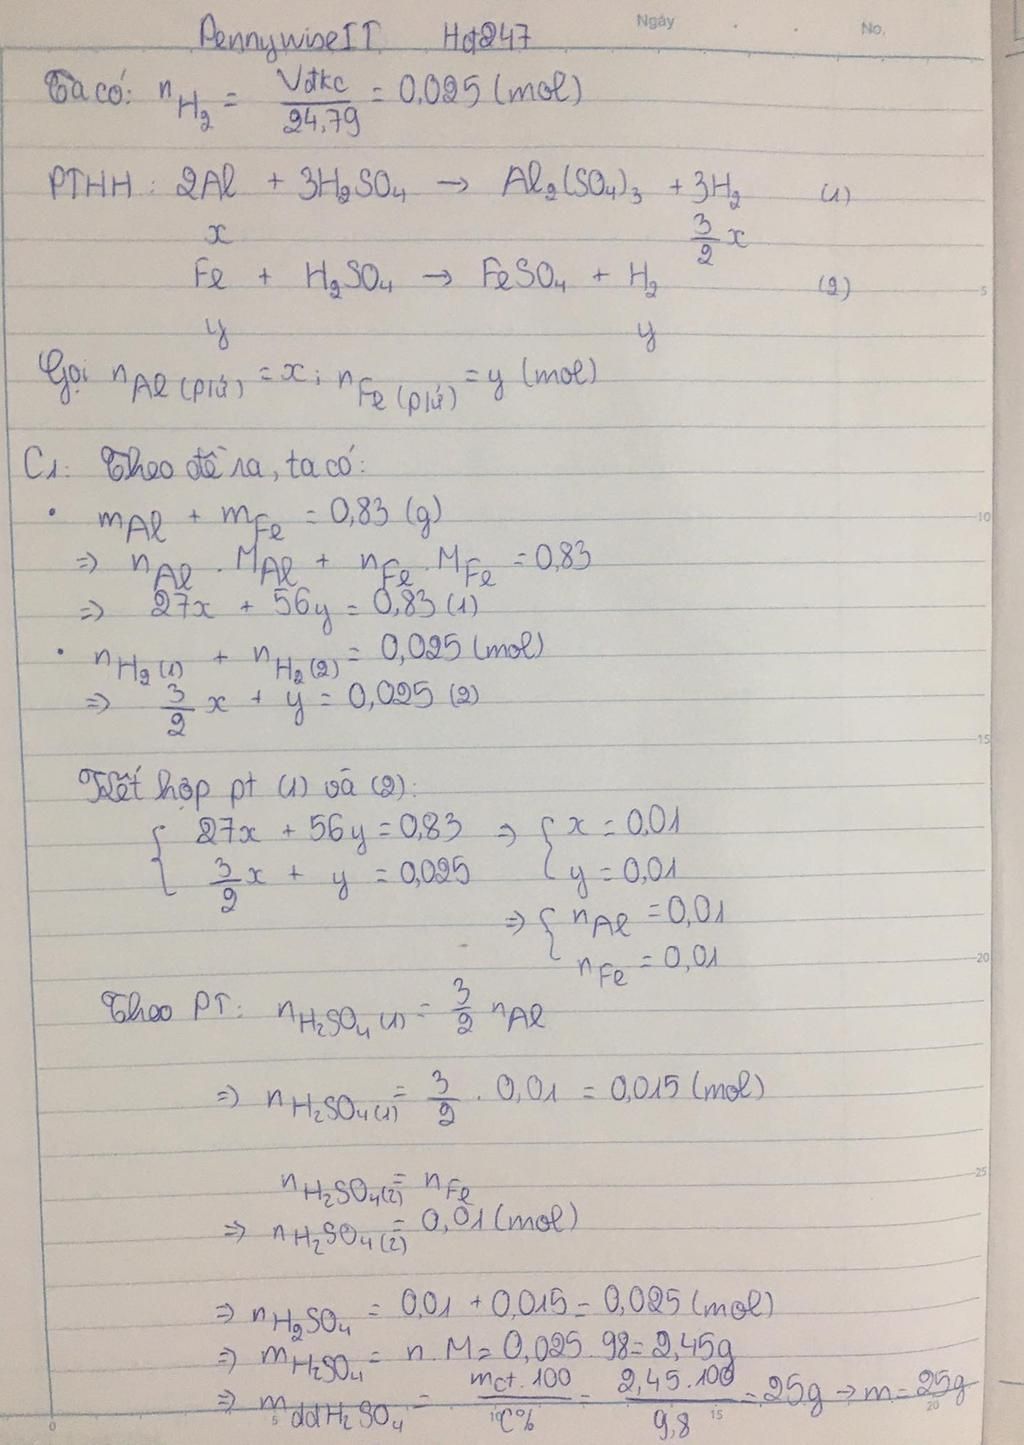 PennywiseIT Hd247 Ngày No.
Ta có: n_H₂ = Vđkc/24,79 = 0,025 (mol)
PTHH: 2Al + 3H₂SO₄ → Al₂(SO₄)₃ + 3H₂ (1)
x 3/2 x
Fe + H₂SO₄ → FeSO₄ + H₂ (2)
y y
Gọi n_Al (p/ứ) = x; n_Fe (p/ứ) = y (mol)
C1: Theo đề ra, ta có:
• m_Al + m_Fe = 0,83 (g)
⇒ n_Al . M_Al + n_Fe . M_Fe = 0,83
⇒ 27x + 56y = 0,83 (1)
• n_H₂(1) + n_H₂(2) = 0,025 (mol)
⇒ 3/2 x + y = 0,025 (2)
Kết hợp pt (1) và (2):
{ 27x + 56y = 0,83 ⇒ { x = 0,01
3/2 x + y = 0,025 y = 0,01
⇒ { n_Al = 0,01
n_Fe = 0,01
Theo PT: n_H₂SO₄(1) = 3/2 n_Al
⇒ n_H₂SO₄(1) = 3/2 . 0,01 = 0,015 (mol)
n_H₂SO₄(2) = n_Fe
⇒ n_H₂SO₄(2) = 0,01 (mol)
⇒ n_H₂SO₄ = 0,01 + 0,015 = 0,025 (mol)
⇒ m_H₂SO₄ = n.M = 0,025.98 = 2,45g
⇒ m_ddH₂SO₄ = mct.100/C% = 2,45.100/9,8 = 25g → m = 25g
5
10
15
20
25
0 5 10 15 20